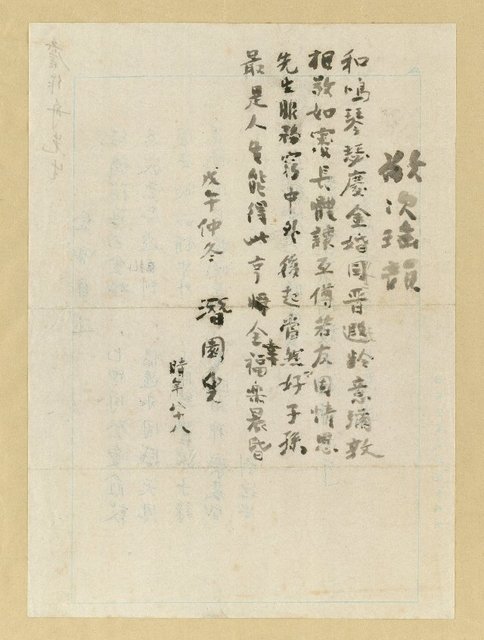 敬次瑤韻
和鳴琴瑟慶金婚同晉遐齡意彌敦
相敬如賓長體諒互傅若友固情恩
先生服務窮中外後起當然好子孫
最是人生能得此亨將全福樂晨昏
業
戊午仲冬
潛園叟
時年八十八